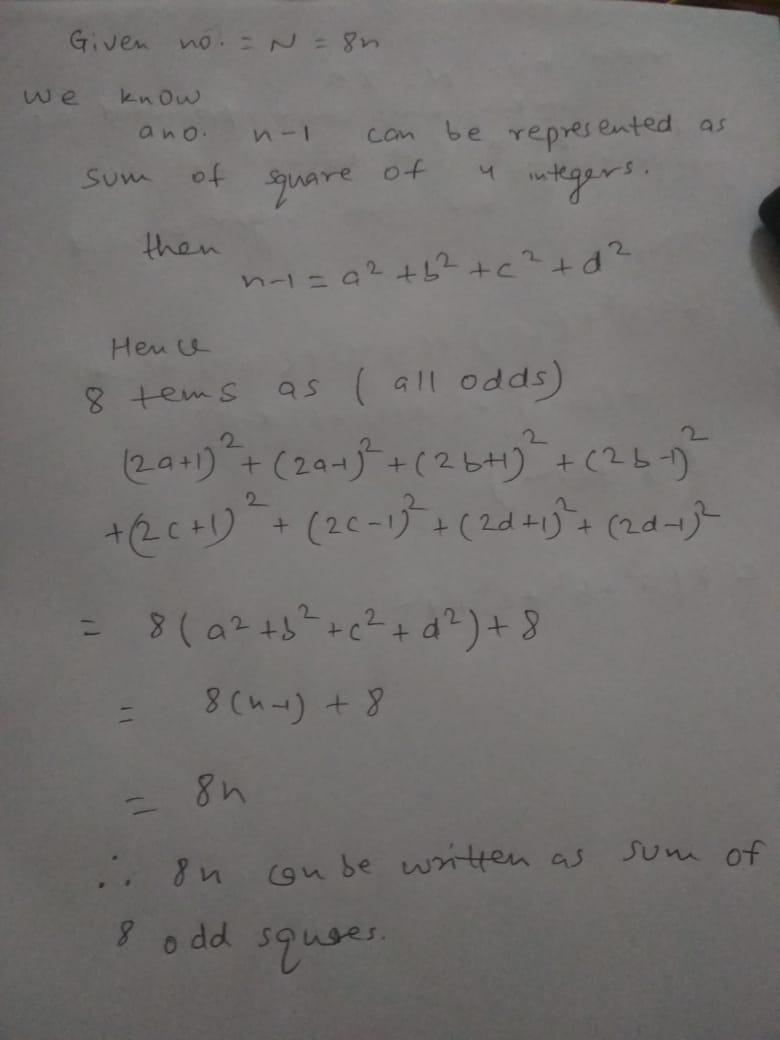 Given no. = N = 8n
we know
a no. n-1 can be represented as
sum of square of 4 integers.
then
n-1 = a² + b² + c² + d²
Hence
8 tems as ( all odds)
(2a+1)² + (2a-1)² + (2b+1)² + (2b-1)²
+ (2c+1)² + (2c-1)² + (2d+1)² + (2d-1)²
= 8(a² + b² + c² + d²) + 8
= 8(n-1) + 8
= 8n
∴ 8n can be written as sum of
8 odd squres.